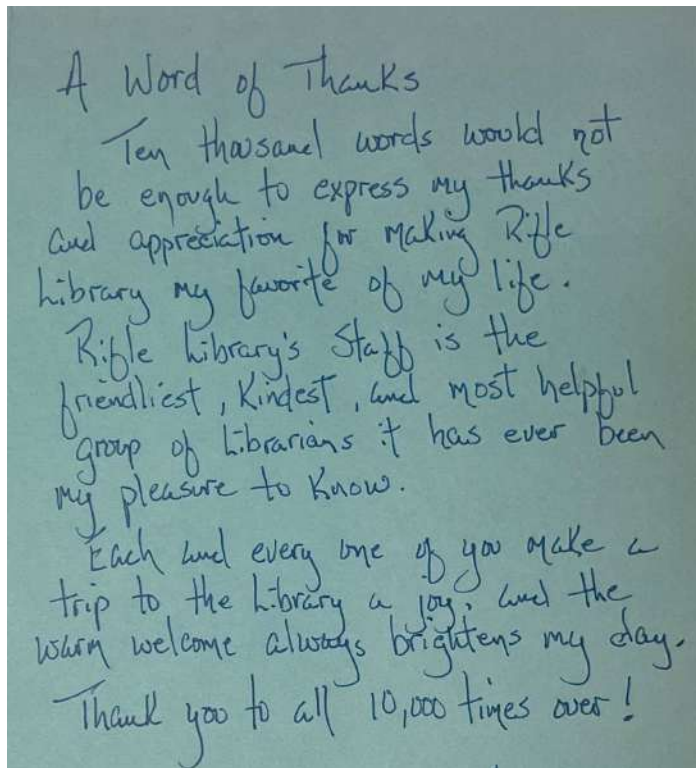 A Word of Thanks
Ten thousand words would not
be enough to express my thanks
and appreciation for making Rifle
Library my favorite of my life.
Rifle Library's Staff is the
friendliest, Kindest, and most helpful
group of Librarians it has ever been
my pleasure to Know.
Each and every one of you make a
trip to the Library a joy, and the
warm welcome always brightens my day.
Thank you to all 10,000 times over!